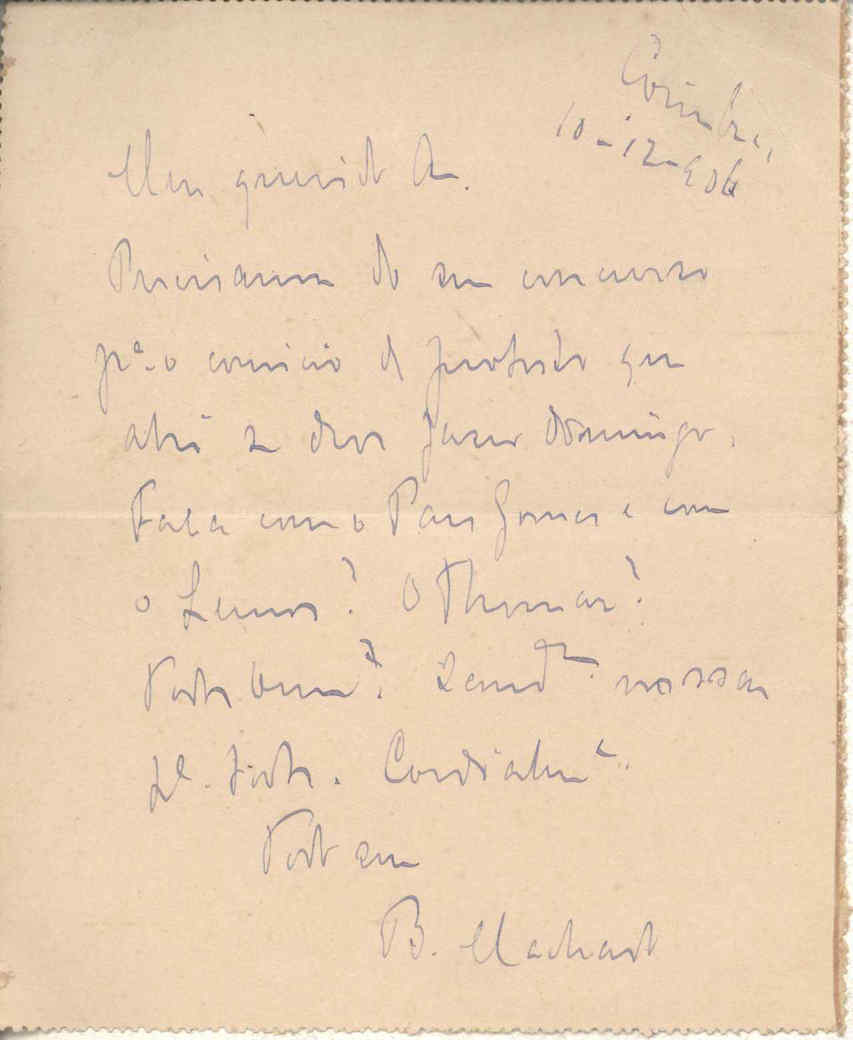 Coimbra,
10-12-906
Meu querido Am.
Precisamos do seu concurso
pª o comicio de protesto que
ahi se deve fazer domingo.
Falla com o Paes Gomes e com
o Lemos? O Thomaz?
Todos bem? Saudes nossas
pª. todos. Cordialmte
Todo seu
B. Machado